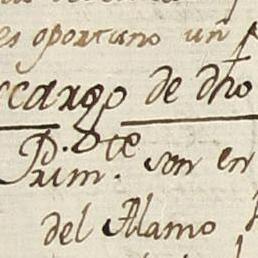 es oportuno un
cargo de dho
Prim.te son en
del Alamo